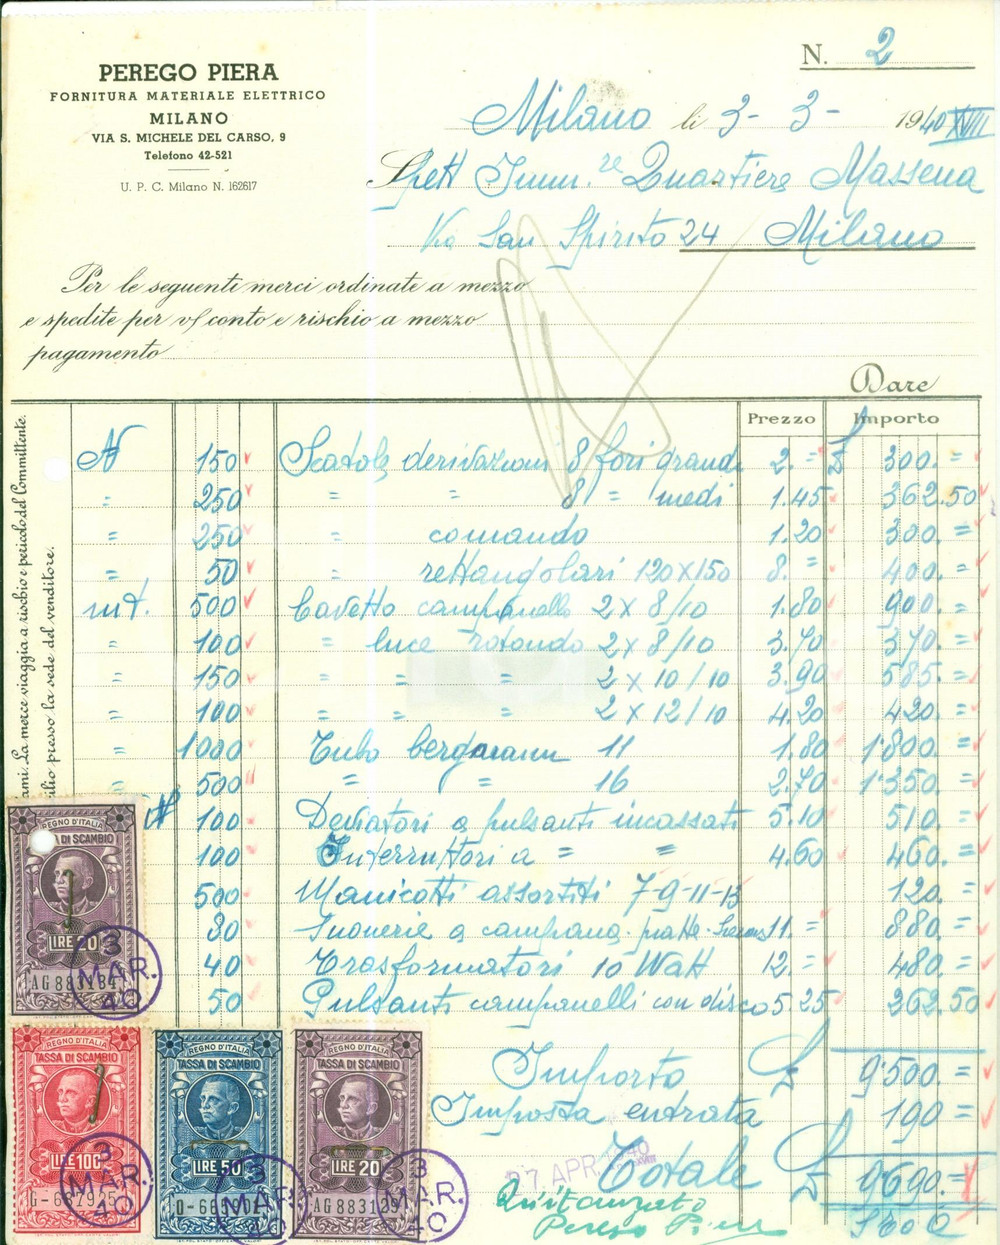 N. 2
PEREGO PIERA
FORNITURA MATERIALE ELETTRICO
MILANO
VIA S. MICHELE DEL CARSO, 9
Telefono 42-521
U. P. C. Milano N. 162617
Milano li 3-3- 1940 XVIII
Spett Imm.re Quartiere Massena
Via San Spirito 24 Milano
Per le seguenti merci ordinate a mezzo
e spedite per v/ conto e rischio a mezzo
pagamento
Dare
Prezzo Importo
N 150 Scatole derivazioni 8 fori grandi 2.= 300.=
" 250 = " 8 = medi 1.45 362.50
" 250 = comando 1.20 300.=
= 50 " rettangolari 120x150 8.= 400.=
mt. 500 Cavetto campanello 2x8/10 1.80 900.=
" 100 " luce rotondo 2x8/10 3.70 370.=
" 150 " = " 2x10/10 3.90 585.=
= 100 " " = 2x12/10 4.20 420.=
" 1000 Tubo bergmann 11 1.80 1'800.=
" 500 = = 16 2.70 1'350.
N 100 Deviatori a pulsanti incassati 5.10 510.=
100 Interruttori a = = 4.60 460.=
500 Manicotti assortiti 7-9-11-13 120.
80 Suonerie a campana 11.= 880.=
40 Trasformatori 10 Watt 12.= 480.=
50 Pulsanti campanelli con disco 5.25 262.50
Importo £ 9'500.=
Imposta entrata 190=
Totale £ 9690.=
27 APR. 1940
Quitanzato
Perego Piera
ami. La merce viaggia a rischio e pericolo del Committente.
ilio presso la sede del venditore.
REGNO D'ITALIA
TASSA DI SCAMBIO
LIRE 20
AG 883184
3
MAR.
40
REGNO D'ITALIA
TASSA DI SCAMBIO
LIRE 100
3
MAR.
40
REGNO D'ITALIA
TASSA DI SCAMBIO
LIRE 50
3
MAR.
40
REGNO D'ITALIA
TASSA DI SCAMBIO
LIRE 20
AG 883129
3
MAR.
40